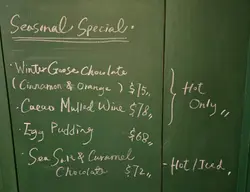 Seasonal Special.
· Winter Goose Chocolate
(Cinnamon & Orange) $75,,
· Cacao Mulled Wine $78,,
} Hot Only,,
· Egg Pudding $68,,
· Sea Salt & Caramel
Chocolate $72,, - Hot/Iced,,